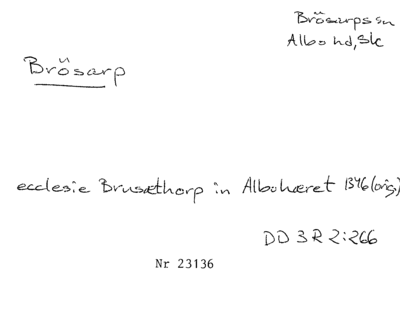 Brösarps sn
Albo hd, Sk
Brösarp
ecclesie Brusæthorp in Albohæret 1346 (orig.)
DD 3 R 2:266
Nr 23136